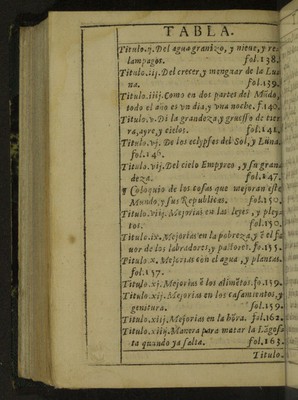 TABLA.
Titulo.ij. Del agua granizo, y nieue, y re-
lampagos. fol.138.
Titulo.iij. Del crecer, y menguar de la Lu-
na. fol.139.
Titulo.iiij. Como en dos partes del Mũdo,
todo el año es vn dia, y vna noche. f.140.
Titulo.v. Di la grandeza, y gruesso de tier
ra, ayre, y cielos. fol.141.
Titulo.vj. De los eclypses del Sol, y Luna.
fol.146.
Titulo.vij. Del cielo Empyreo, y su gran
deza. fol.147.
¶ Coloquio de las cosas que mejoran este
Mundo, y sus Republicas. fol.150.
Titulo.viij. Mejorias en las leyes, y pleya
tos. fol.150.
Titulo.ix. Mejorias en la pobreza, y ẽ el fa
uor de los labradores, y pastores. fo.155.
Titulo.x. Mejorias con el agua, y plantas.
fol.157.
Titulo.xj. Mejorias ẽ los alimẽtos. fo.159.
Titulo.xij. Mejorias en los casamientos, y
genitura. fol.159.
Titulo.xiij. Mejorias en la hõra. fol.162.
Titulo.xiiij. Manera para matar la Lãgos
ta quando ya salta. fol.163.
Titulo.